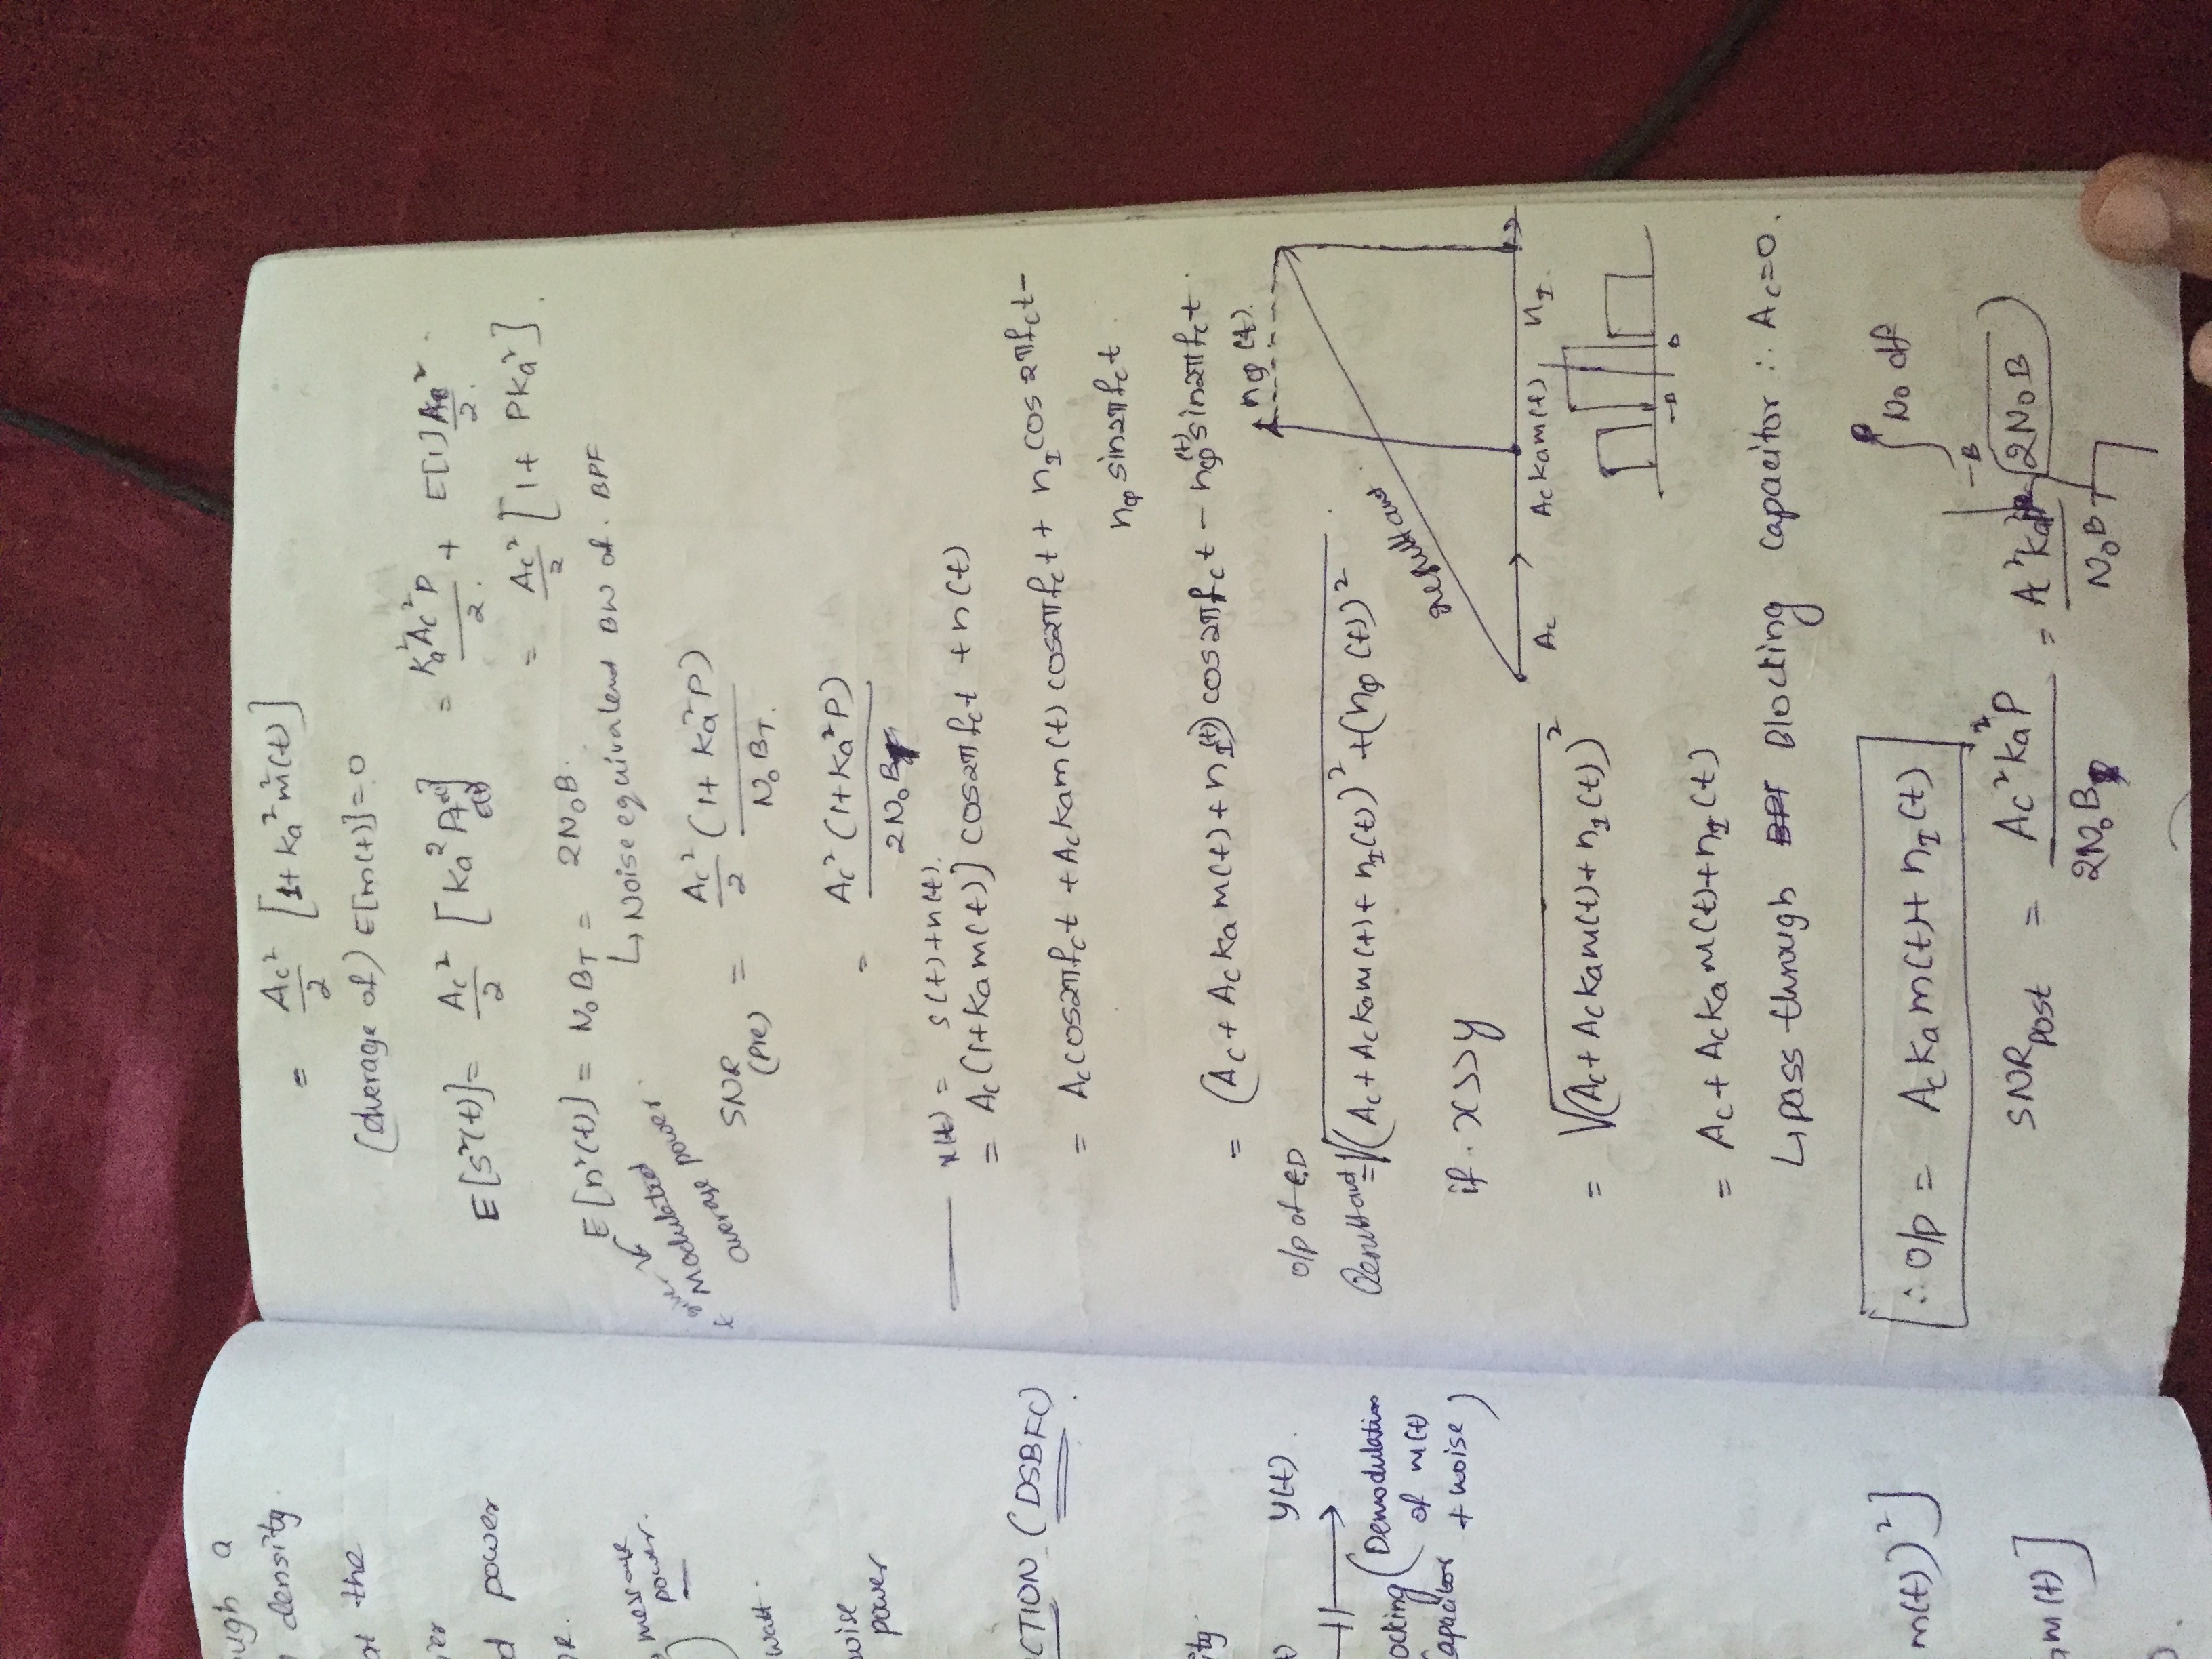 ugh a
density.
at the
ier
d power
OR.
message
power.
watt.
noise
power
CTION (DSBFC)
ity.
y(t).
ocking (Demodulation
of m(t)
capacitor + noise)
m(t))²]
am(t)]
= Ac²/2 [1+ ka² m²(t)]
(average of) E[m(t)] = 0
E[s²(t)] = Ac²/2 [ka² P = ka²Ac²P/2. + E[1]Ac²/2.
= Ac²/2 [1+ Pka²].
E[n²(t)] = N₀BT = 2N₀B.
↳ Noise equivalent BW of. BPF
given
Modulated
average power.
SNR (Pre) = Ac²/2 (1+ ka²P) / N₀BT.
= Ac² (1+ka²P) / 2N₀BT
x(t) = s(t)+n(t).
= Ac(1+kam(t)] cos2πfct + n(t)
= Ac cos2πfct + Ackam(t) cos2πfct + nI cos2πfct -
nQ sin2πfct
= (Ac+ Acka m(t) + nI(t)) cos2πfct - nQ(t) sin2πfct.
o/p of ED
Resultant = √(Ac+Ackam(t)+ nI(t))² + (nQ(t))²
nQ(t).
resultant
Ac Ackam(t) nI.
if. x>>y
= √(Ac+ Ackam(t)+nI(t))²
-B B
= Ac+ Acka m(t)+nI(t)
↳ pass through Blocking capacitor ∴ Ac=0.
∴ o/p = Acka m(t)+ nI(t)
∫ N₀ df
-B
SNR Post = Ac²ka²P / 2N₀B = A²ka² / N₀B
2N₀B